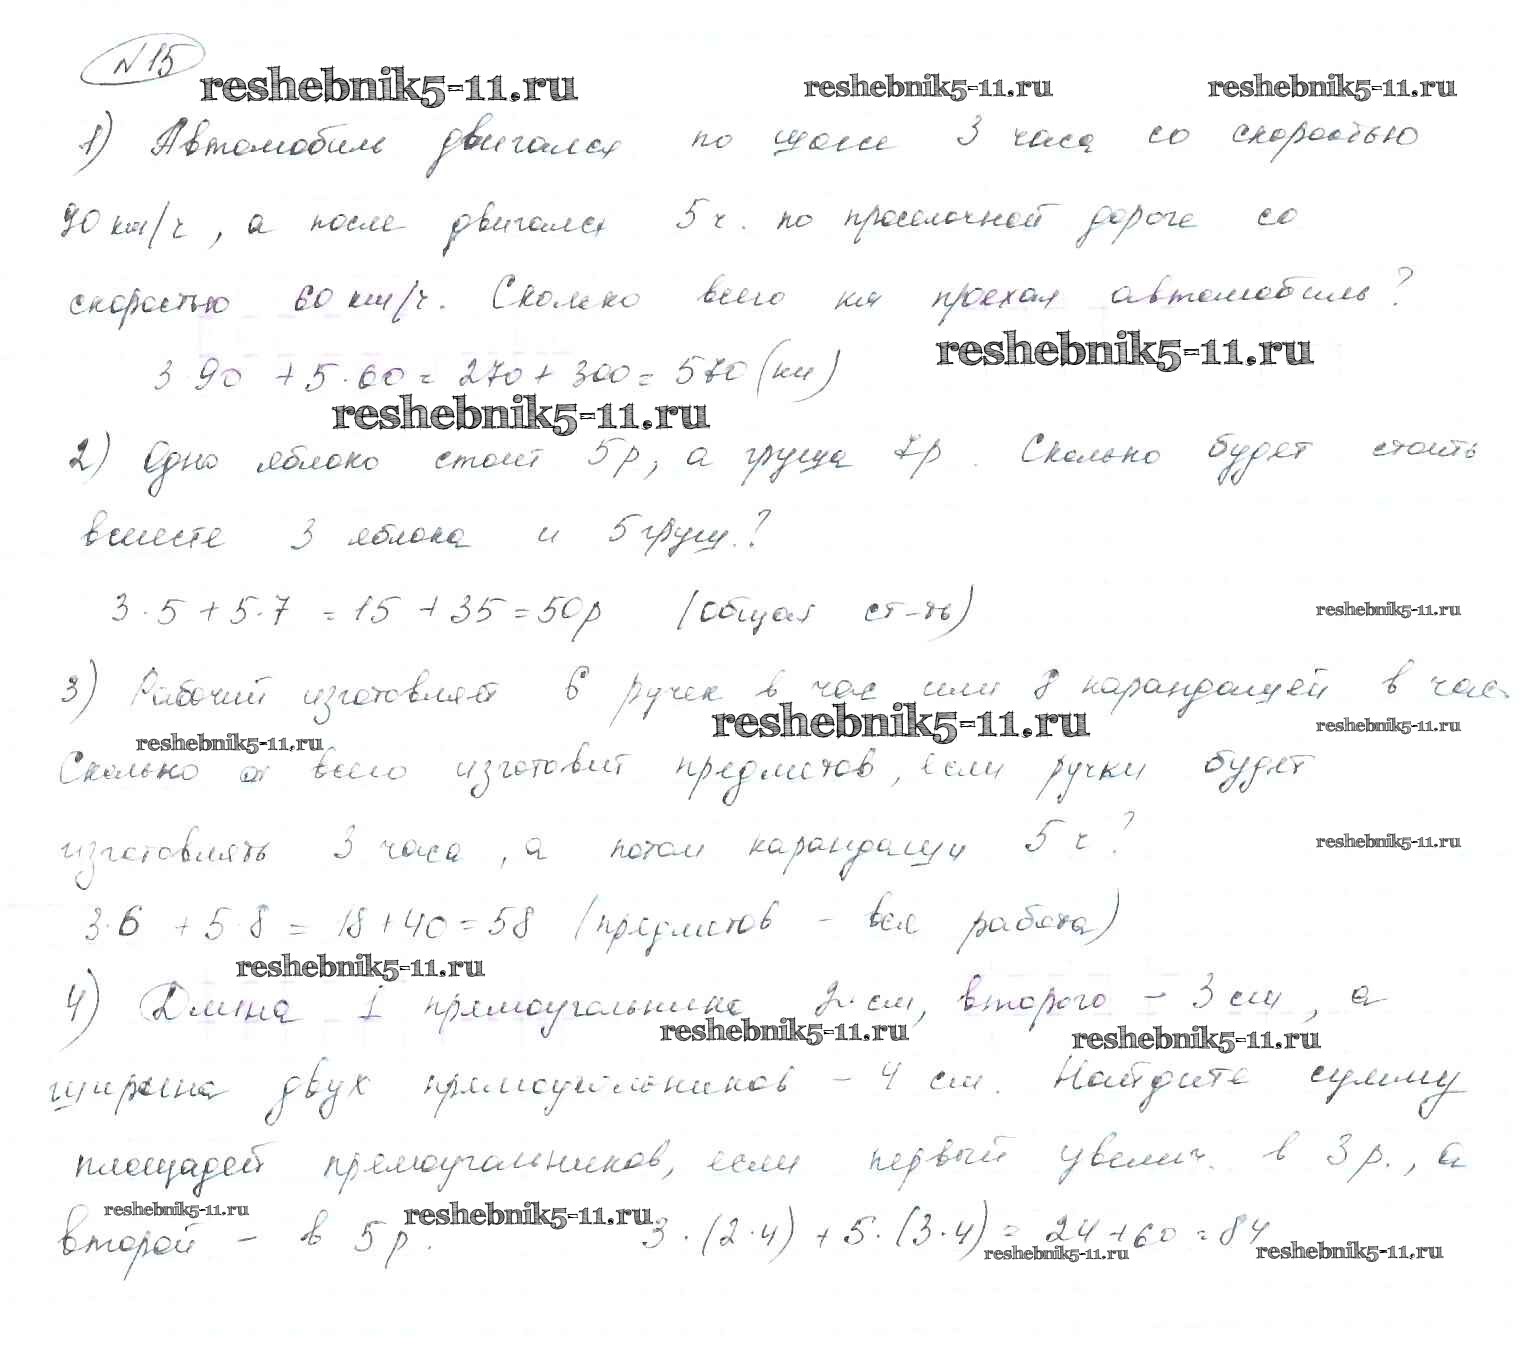 №15
reshebnik5-11.ru reshebnik5-11.ru reshebnik5-11.ru
1) Автомобиль двигался по шоссе 3 часа со скоростью
90 км/ч, а после двигался 5 ч. по проселочной дороге со
скоростью 60 км/ч. Сколько всего км проехал автомобиль?
reshebnik5-11.ru
3·90 + 5·60 = 270 + 300 = 570 (км)
reshebnik5-11.ru
2) Одно яблоко стоит 5р, а груша 7р. Сколько будет стоить
вместе 3 яблока и 5 груш.?
3·5 + 5·7 = 15 + 35 = 50р (общая ст-ть)
reshebnik5-11.ru
3) Рабочий изготовляет 6 ручек в час или 8 карандашей в час.
reshebnik5-11.ru reshebnik5-11.ru reshebnik5-11.ru
Сколько всего изготовит предметов, если ручки будет
изготовлять 3 часа, а потом карандаши 5 ч?
reshebnik5-11.ru
3·6 + 5·8 = 18 + 40 = 58 (предметов - вся работа)
reshebnik5-11.ru
4) Длина 1 прямоугольника 2 см, второго - 3 см, а
reshebnik5-11.ru reshebnik5-11.ru
ширина двух прямоугольников - 4 см. Найдите сумму
площадей прямоугольников, если первый увелич. в 3 р., а
reshebnik5-11.ru reshebnik5-11.ru
второй - в 5 р. 3·(2·4) + 5·(3·4) = 24 + 60 = 84
reshebnik5-11.ru reshebnik5-11.ru